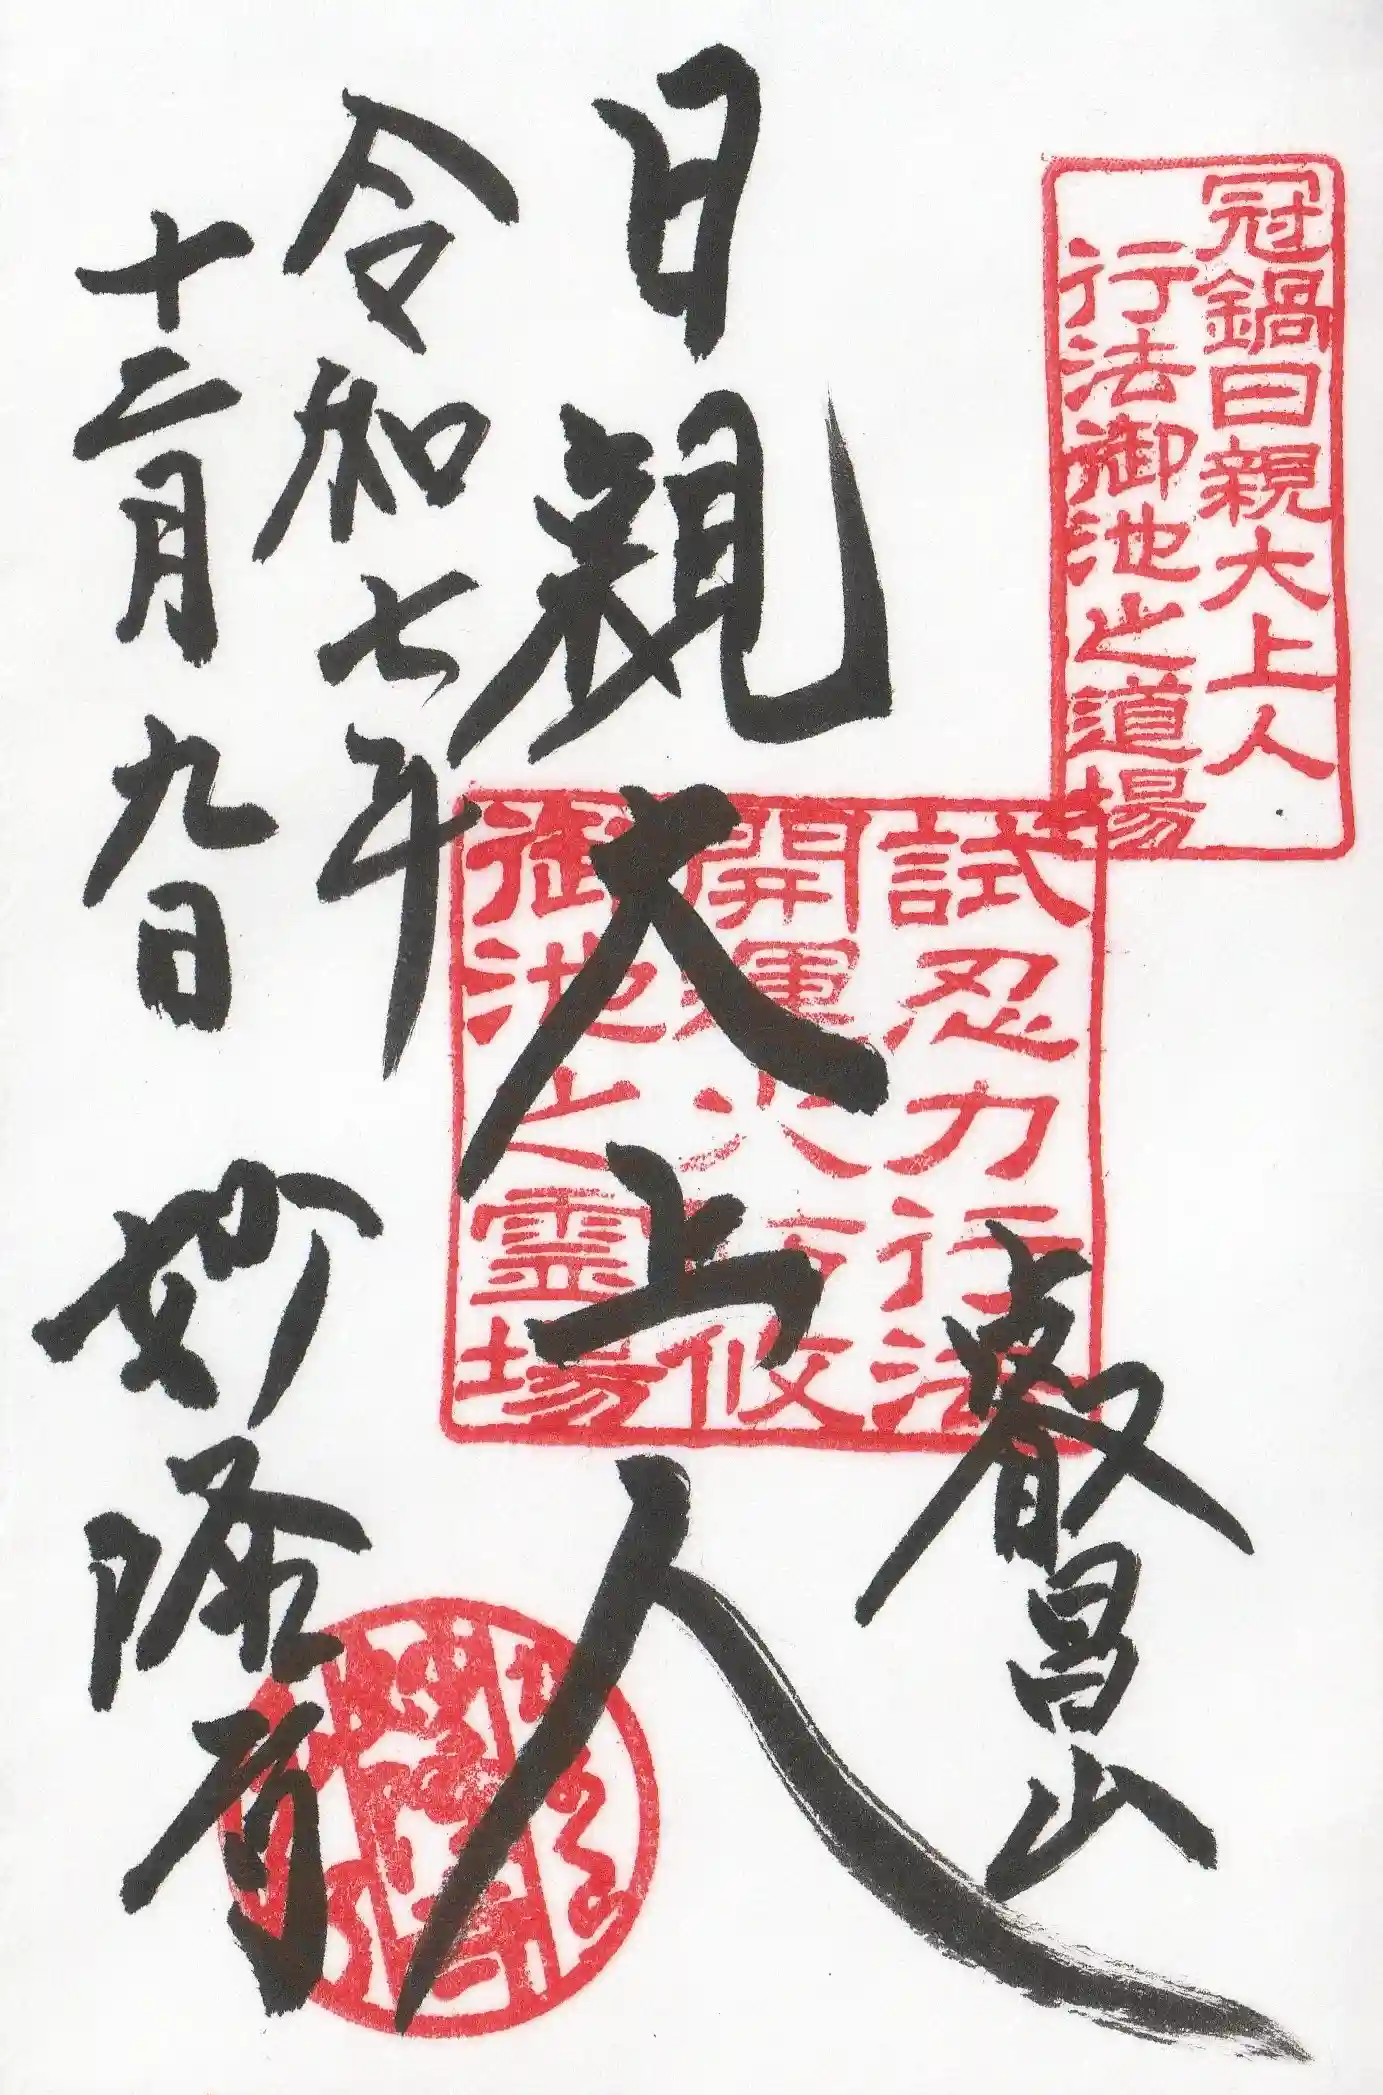 冠鍋日親大上人
行法御池之道場
叡昌山
試忍力行法
開運火
御池之霊場
日親大上人
令和七年
十二月九日
妙隆寺